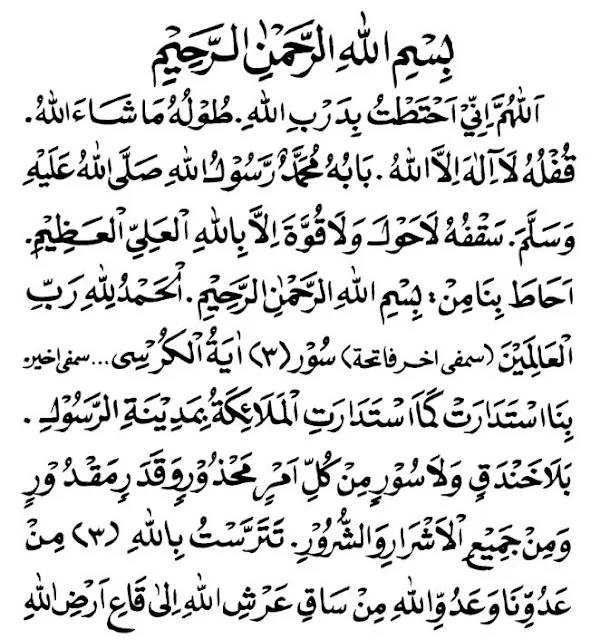 بِسْمِ اللهِ الرَّحْمٰنِ الرَّحِيْمِ
اَللّٰهُمَّ اِنِّيْ اَحْتَطْتُ بِدَرْبِ اللهِ. طُوْلُهُ مَا شَاءَ اللهُ.
قُفْلُهُ لَآ اِلٰهَ اِلَّا اللهُ. بَابُهُ مُحَمَّدٌ رَسُوْلُ اللهِ صَلَّى اللهُ عَلَيْهِ
وَسَلَّمَ. سَقْفُهُ لَاحَوْلَ وَلَا قُوَّةَ اِلَّا بِاللهِ الْعَلِيِّ الْعَظِيْمِ.
اَحَاطَ بِنَا مِنْ: بِسْمِ اللهِ الرَّحْمٰنِ الرَّحِيْمِ. اَلْحَمْدُ لِلّٰهِ رَبِّ
الْعَالَمِيْنَ (سمفى اخر فاتحة) سُوْر (٣) اٰيَةُ الْكُرْسِى... سمفى اخير
بِنَا اسْتَدَارَتْ كَمَا اسْتَدَارَتِ الْمَلَائِكَةُ بِمَدِيْنَةِ الرَّسُوْلِ.
بَلَاخَنْدَقٍ وَلَا سُوْرٍ مِنْ كُلِّ اَمْرٍ مَحْذُوْرٍ وَقَدَرٍ مَقْدُوْرٍ
وَمِنْ جَمِيْعِ الْاَشْرَارِ وَالشُّرُوْرِ. تَتَرَّسْتُ بِاللهِ (٣) مِنْ
عَدُوِّنَا وَعَدُوِّ اللهِ مِنْ سَاقِ عَرْشِ اللهِ اِلٰى قَاعِ اَرْضِ اللهِ